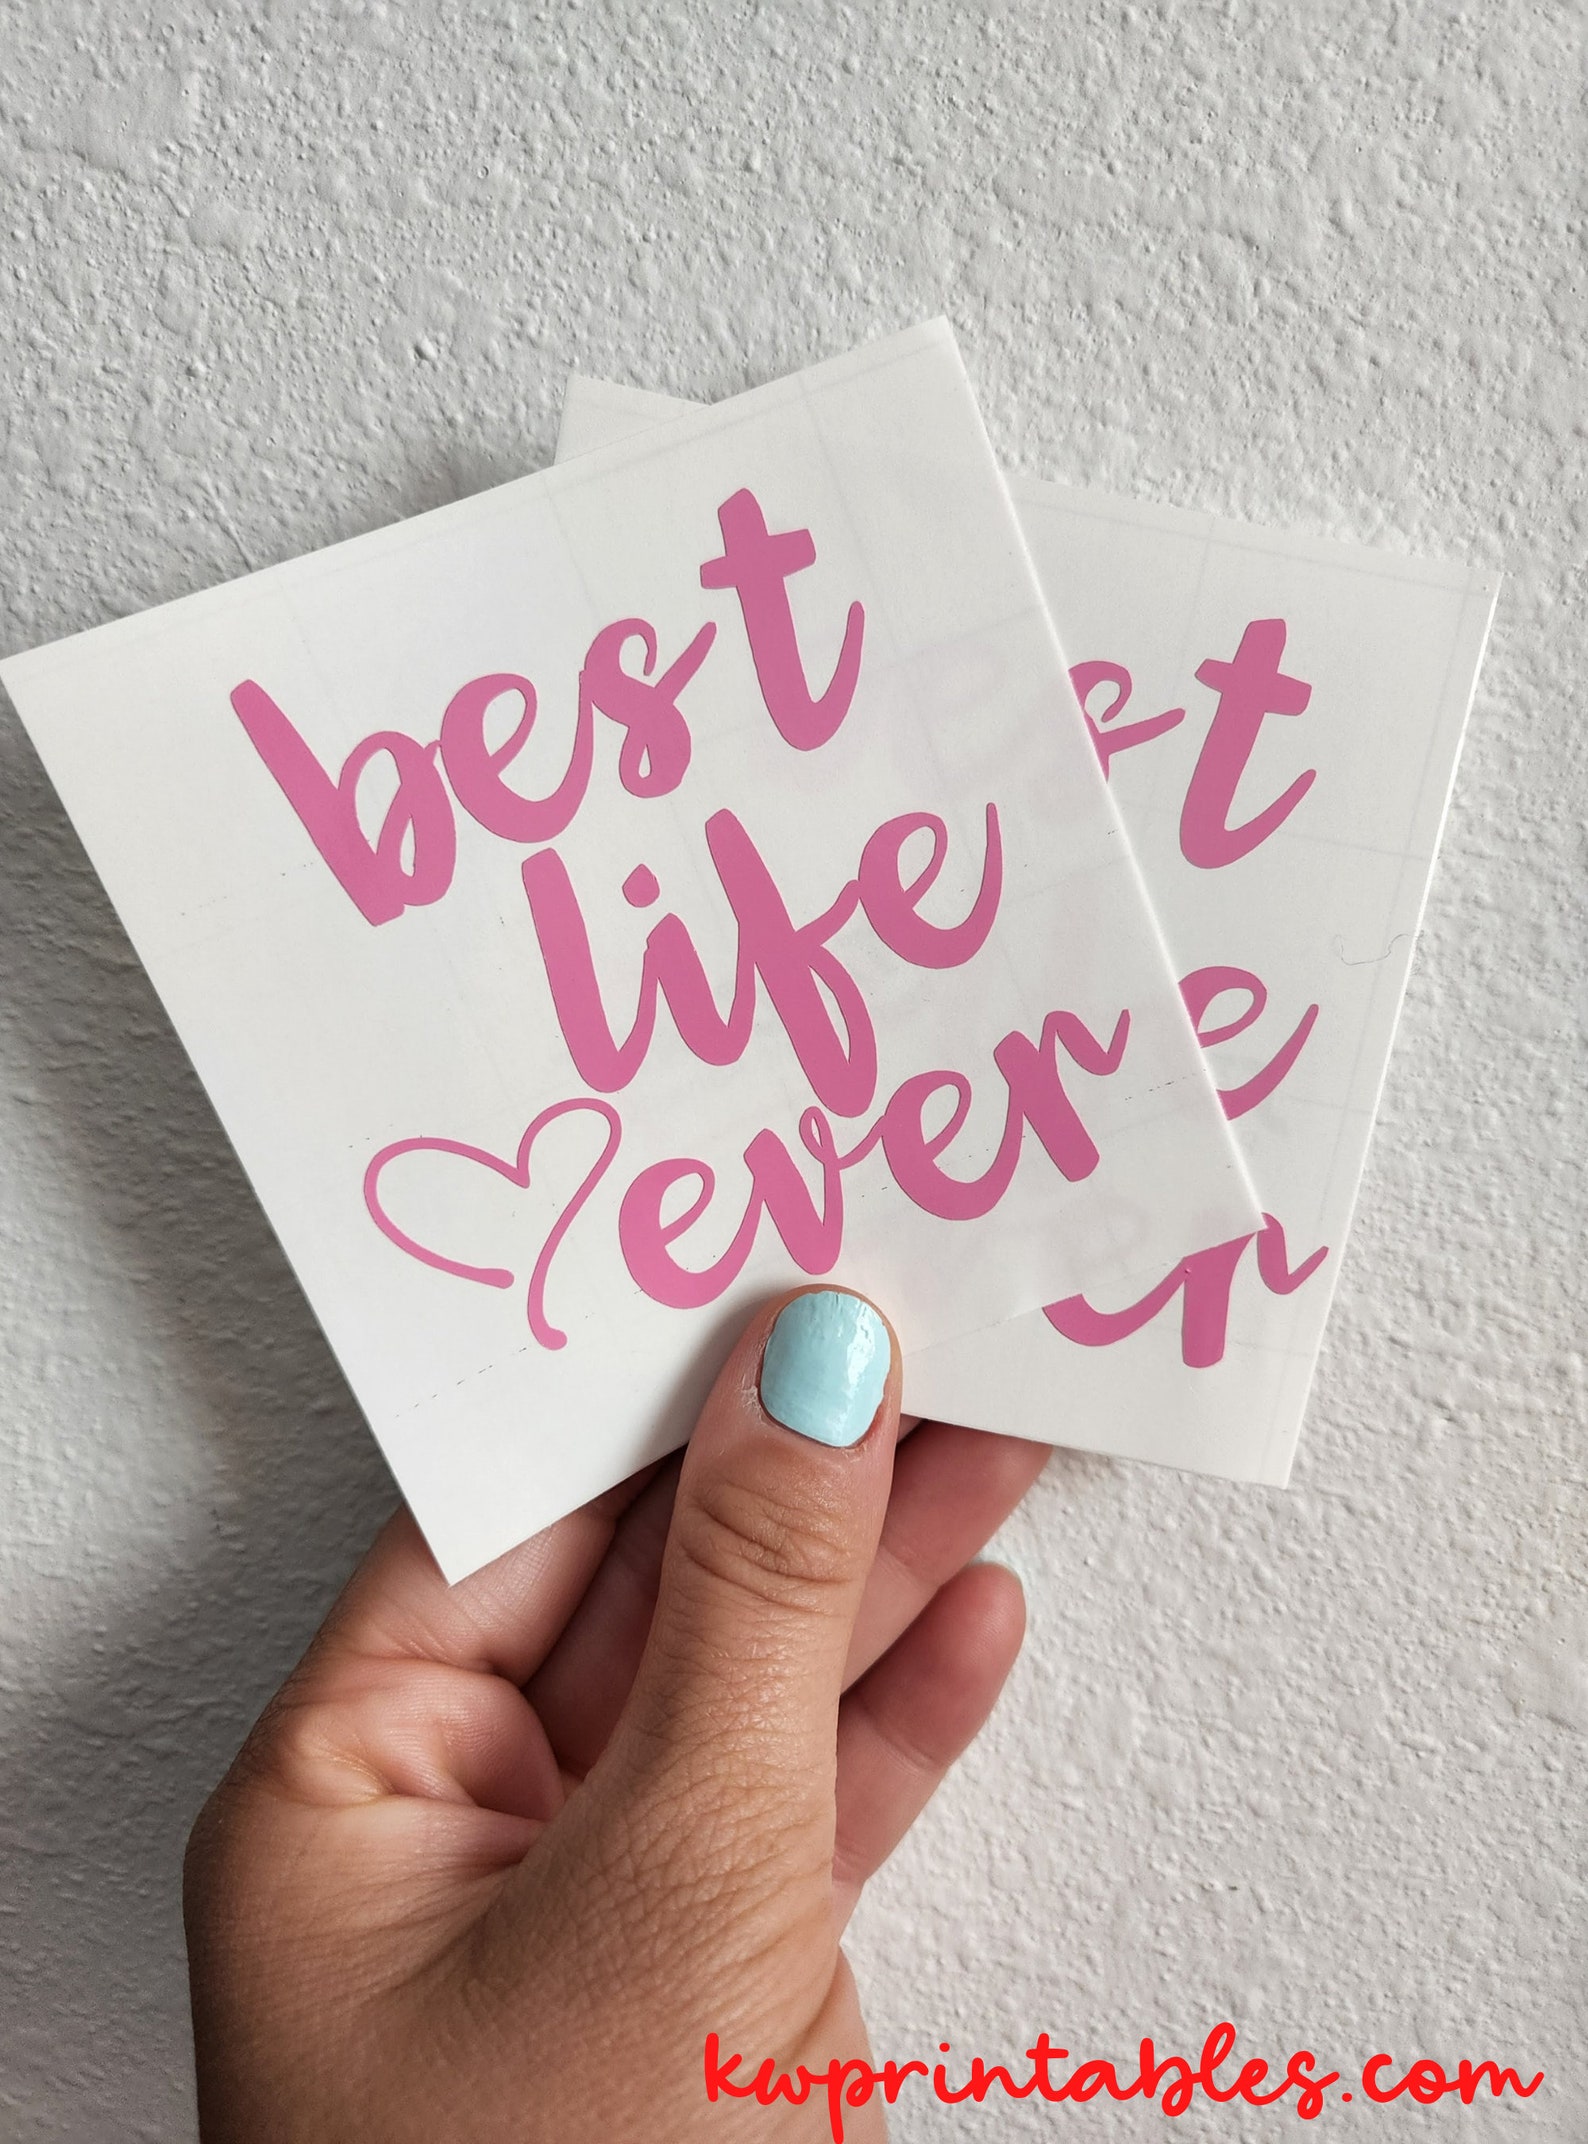 best
life
ever
st
e
er
kwprintables.com